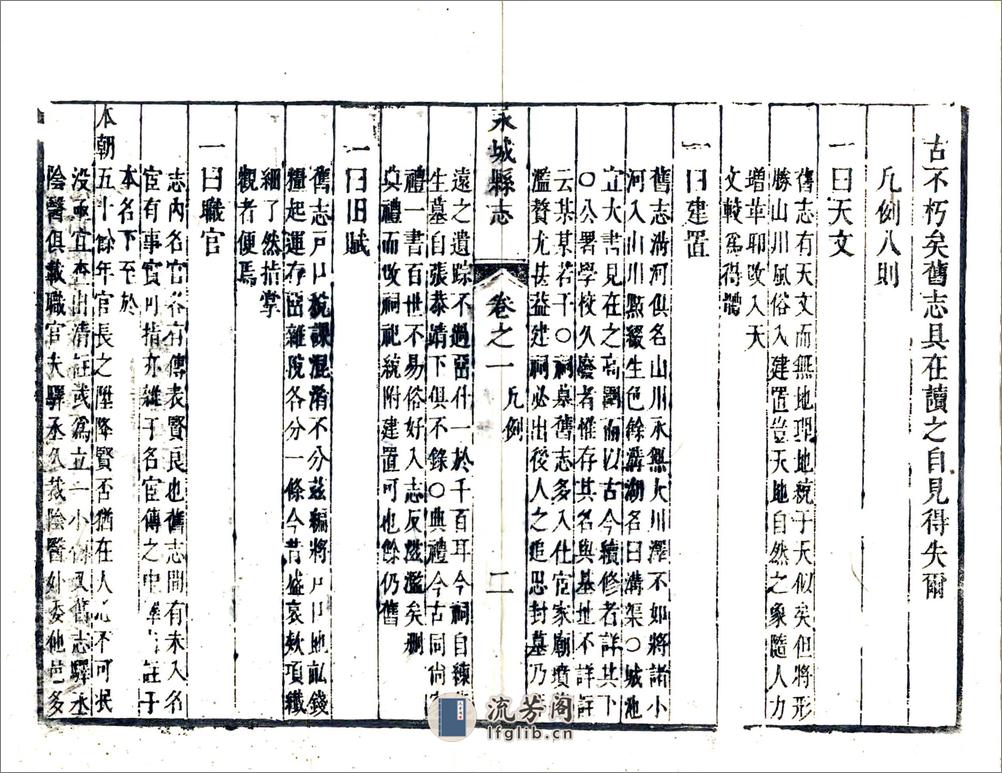 古不朽矣舊志具在讀之自見得失爾
凡例八則
一曰天文
舊志有天文而無地理地統于天似矣但將形
勝山川風俗入建置豈天地自然之象隨人力
增革耶改入天
文較爲得體
一曰建置
舊志溝河俱名山川永無大川澤不如將諸小
河入山川點綴生色餘溝湖名曰溝渠○城池
宜大書見在之高濶而以古今續修者詳其下
○公署學校久廢者惟存其名與基址不詳註
云某某若干○祠墓舊志多入仕宦家廟墳
濫贅尤甚益建祠必出後人之追思封墓乃
永城縣志
卷之一
凡例
二
遠之遺踪不過存什一於千百耳今祠自練
生墓自張泰躋下俱不錄○典禮今古同尚
禮一書百世不易俗好入志反滋濫矣删
典禮而改祠祀統附建置可也餘仍舊
一曰田賦
舊志戸口稅課混淆不分兹編將戸口地畝錢
糧起運存留雜稅各分一條今昔盛衰欵項纖
細了然指掌
觀者便焉
一曰職官
志內名宦各有傳表賢良也舊志間有未入名
宦有事實可指亦雜于名宦傳之中 註于
本名下至於
本朝五十餘年官長之陞降賢否猶在人 不可泯
没 宜 出清 或爲立一小傳又舊志驛丞
陰醫俱載職官夫驛丞久裁陰醫妙委他邑多
流芳阁
lfglib.cn